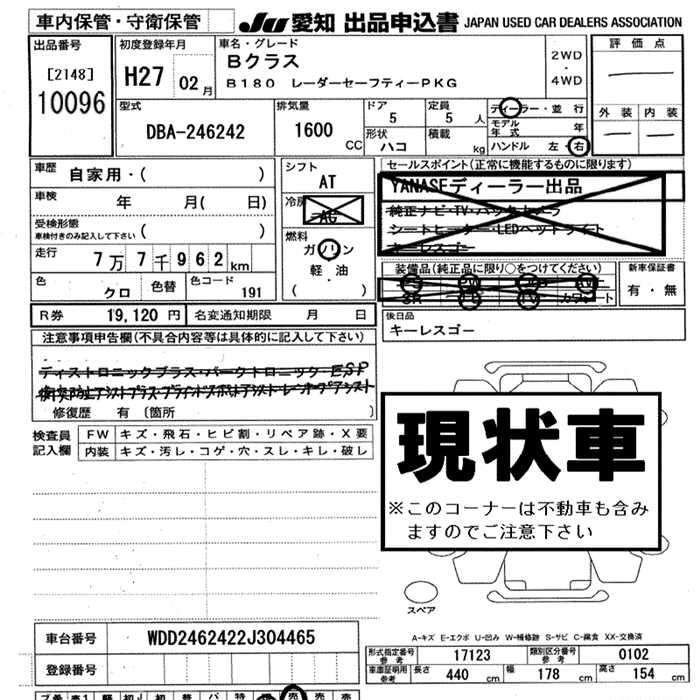 車内保管・守衛保管 JU 愛知 出品申込書 JAPAN USED CAR DEALERS ASSOCIATION
出品番号 初度登録年月 車名・グレード 評価点
[2148] H27 02月 Bクラス 2WD・4WD
10096 B180 レーダーセーフティーPKG
型式 排気量 ドア 定員 ディーラー・並行 外装 内装
DBA-246242 1600CC 5 5人 モデル年式 年
形状 ハコ 積載 kg ハンドル 左・右
車歴 自家用・( ) シフト セールスポイント(正常に機能するものに限ります)
車検 年 月( 日) AT YANASEディーラー出品
受検形態 冷房 AC 純正ナビ・TV・バックカメラ
車検付きのみ記入して下さい ( ) シートヒーター・LEDヘッドライト
走行 7万7千962km 燃料 ガソリン キーレスゴー
軽・油 装備品(純正品に限り○をつけてください) 新車保証書
色 クロ 色替 色コード 191 ( ) 有・無
R券 19,120円 名変通知期限 月 日 後日品
キーレスゴー
注意事項申告欄(不具合内容等は具体的に記入して下さい)
ディストロニックプラス・パークトロニック・ESP
修復歴 有 〔箇所 〕
検査員記入欄 FW キズ・飛石・ヒビ割・リペア跡・X要
内装 キズ・汚レ・コゲ・穴・スレ・キレ・破レ
現状車
※このコーナーは不動車も含み
ますのでご注意下さい
スペア
A-キズ E-エクボ U-凹み W-補修跡 S-サビ C-腐食 XX-交換済
車台番号 WDD2462422J304465
形式指定番号 参考 17123 類別区分番号 参考 0102
登録番号 車庫証明用 参考 長さ 440cm 幅 178cm 高さ 154cm